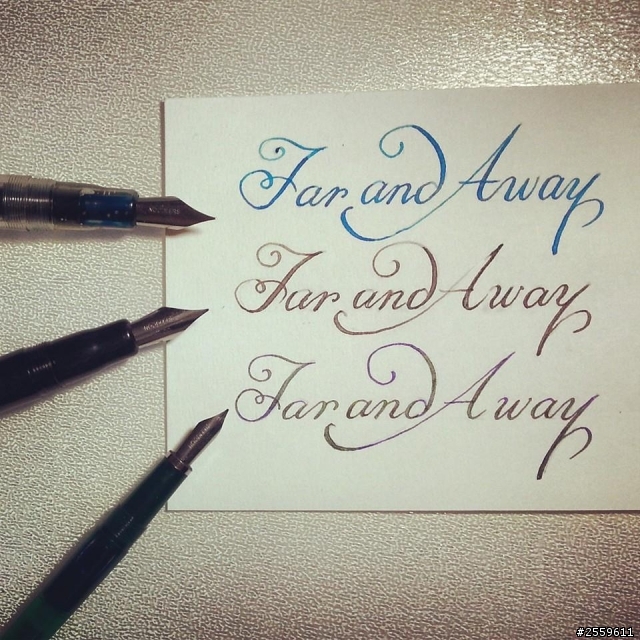 Far and Away
Far and Away
Far and Away
#2559611